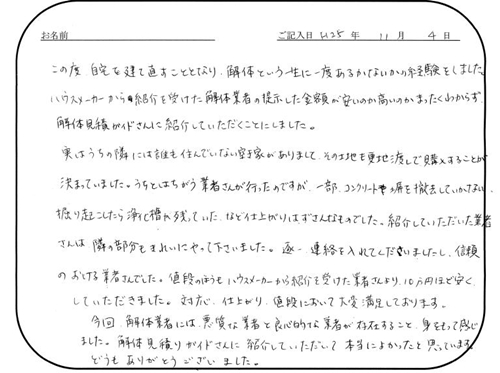 お名前 ご記入日 H25 年 11 月 4 日
この度、自宅を建て直すこととなり、解体という一生に一度あるかないかの経験をしました。
ハウスメーカーから紹介を受けた解体業者の提示した金額が安いのか高いのかまったくわからず、
解体見積ガイドさんに紹介していただくことにしました。
実はうちの隣には誰も住んでいない空き家がありまして、その土地を更地渡しで購入することが
決まっていました。うちとはちがう業者さんが行ったのですが、一部、コンクリートや塀を撤去していかない、
掘り起こしたら浄化槽が残っていた、など仕上がりはずさんなものでした。紹介していただいた業者
さんは隣の部分もきれいにやって下さいました。逐一連絡を入れてくださいましたし、信頼
のおける業者さんでした。値段のほうもハウスメーカーから紹介を受けた業者さんより、10万円ほど安く
していただきました。対応、仕上がり、値段において大変満足しております。
今回、解体業者には、悪質な業者と良心的な業者が存在すること、身をもって感じ
ました。解体見積りガイドさんに紹介していただいて本当によかったと思っています。
どうもありがとうございました。